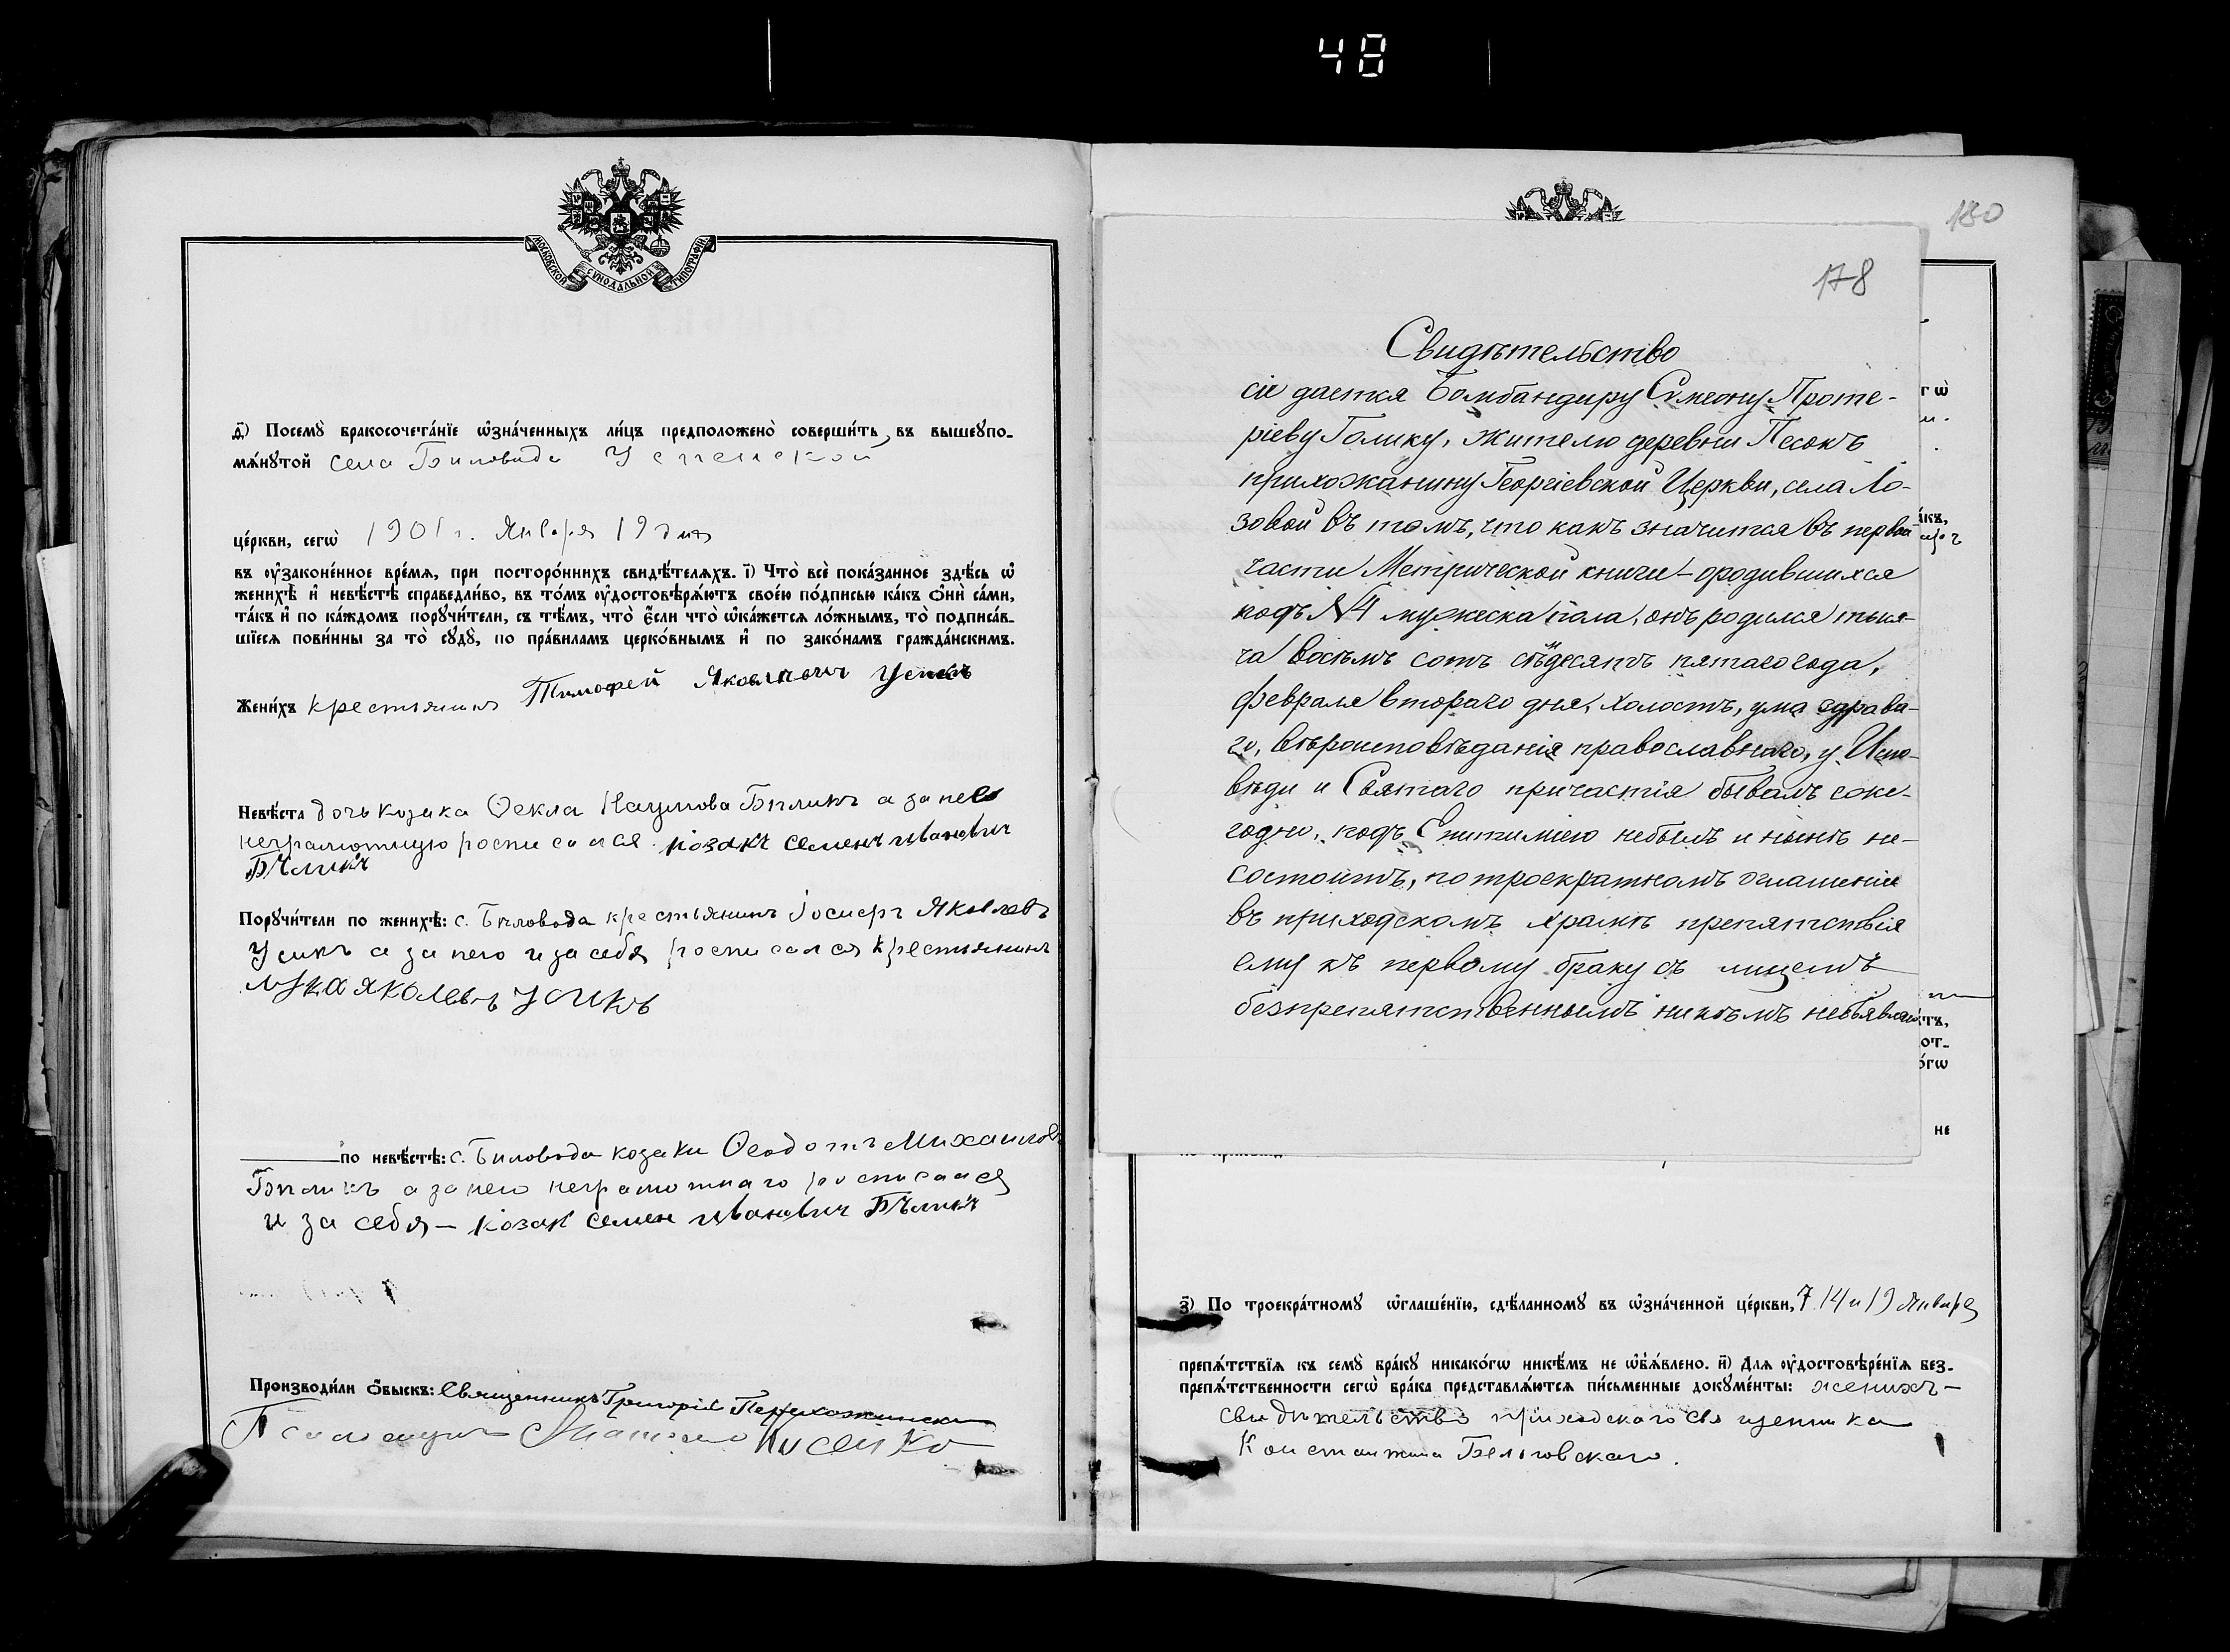 48
МОСКОВСКОЙ СѴНОДАЛЬНОЙ ТИПОГРАФІИ
д҃і) Посемꙋ̀ бракосочета́нїе ѡ҆зна́ченныхъ ли́цъ предположено̀ соверши́ть въ вышеꙋпо-
мѧ́нꙋтой села Биловода Успенской
це́ркви, сегѡ̀ 1901 г. Января 19 дня
въ ᲂу҆законе́нное вре́мѧ, при посторо́ннихъ свидѣ́телѧхъ. і҃) Что̀ всѐ пока́занное здѣ́сь ѡ҆
женихѣ̀ и҆ невѣ́стѣ справедли́во, въ то́мъ ᲂу҆достовѣрѧ́ютъ свое́ю по́дписью ка́къ ѻ҆нѝ са́ми,
та́къ и҆ по ка́ждомъ порꙋчи́тели, съ тѣ́мъ, что̀ є҆́сли что̀ ѡ҆ка́жетсѧ ло́жнымъ, то̀ подписа́в-
шїесѧ пови́нны за то̀ сꙋдꙋ̀, по пра́виламъ церко́внымъ и҆ по зако́намъ гражда́нскимъ.
Жени́хъ крестьянинъ Тимофей Яковлевичъ Усикъ
Невѣ́ста дочь козака Ѳекла Наумова Бѣликъ а за нее
неграмотную росписался козакъ семенъ ивановичъ
Бѣликъ
Порꙋчи́тели по женихѣ̀: с. Биловода крестьянинъ Іосифъ Яковлевъ
Усикъ а за него и за себя росписался крестьянинъ
лука яколевъ усикъ
по невѣ́стѣ: с. Биловода козаки Ѳеодотъ Михаиловъ
Бѣликъ а за него неграмотнаго росписался
и за себя – козак семен ивановичъ Бѣликъ
Производи́ли ѻ҆́быскъ: Священникъ Григорій
Псаломщикъ Лисенко
180
178
Свидѣтельство
сіе дается Бомбандиру Симеону Проте-
ріеву Голику, жителю деревни Песокъ
прихожанину Георгіевской Церкви, села Ло-
зовой въ томъ, что какъ значится въ первой
части Метрической книги – ородившихся
подъ №4 мужеска пола, онъ родился тыся-
ча восемь сотъ семдесятъ пятаго года,
февраля втораго дня, холостъ, ума здрава-
го, вѣроисповѣданія православнаго, у Испо-
вѣди и Святаго причастія бывалъ еже-
годно, подъ Епитиміею небылъ и нынѣ не-
состоитъ, по троекратномъ оглашеніи
въ приходскомъ храмѣ препятствія
ему къ первому браку съ лицемъ
безпрепятственнымъ никѣмъ небъявлено
гѡ̀
а́къ,
тъ,
от-
о́гѡ
не
з҃) По троекра́тномꙋ ѡ҆глаше́нїю, сдѣ́ланномꙋ въ ѡ҆зна́ченной це́ркви, 7. 14 и 19 Января
препѧ́тствїѧ къ семꙋ̀ бра́кꙋ никако́гѡ никѣ́мъ не ѡ҆б̾ѧ́влено. и҃) Длѧ ᲂу҆достовѣре́нїѧ без-
препѧ́тственности сегѡ̀ бра́ка представлѧ́ютсѧ пи́сьменные докꙋме́нты: женихъ –
свидѣтельство приходскаго священника
Константина Бельговскаго.